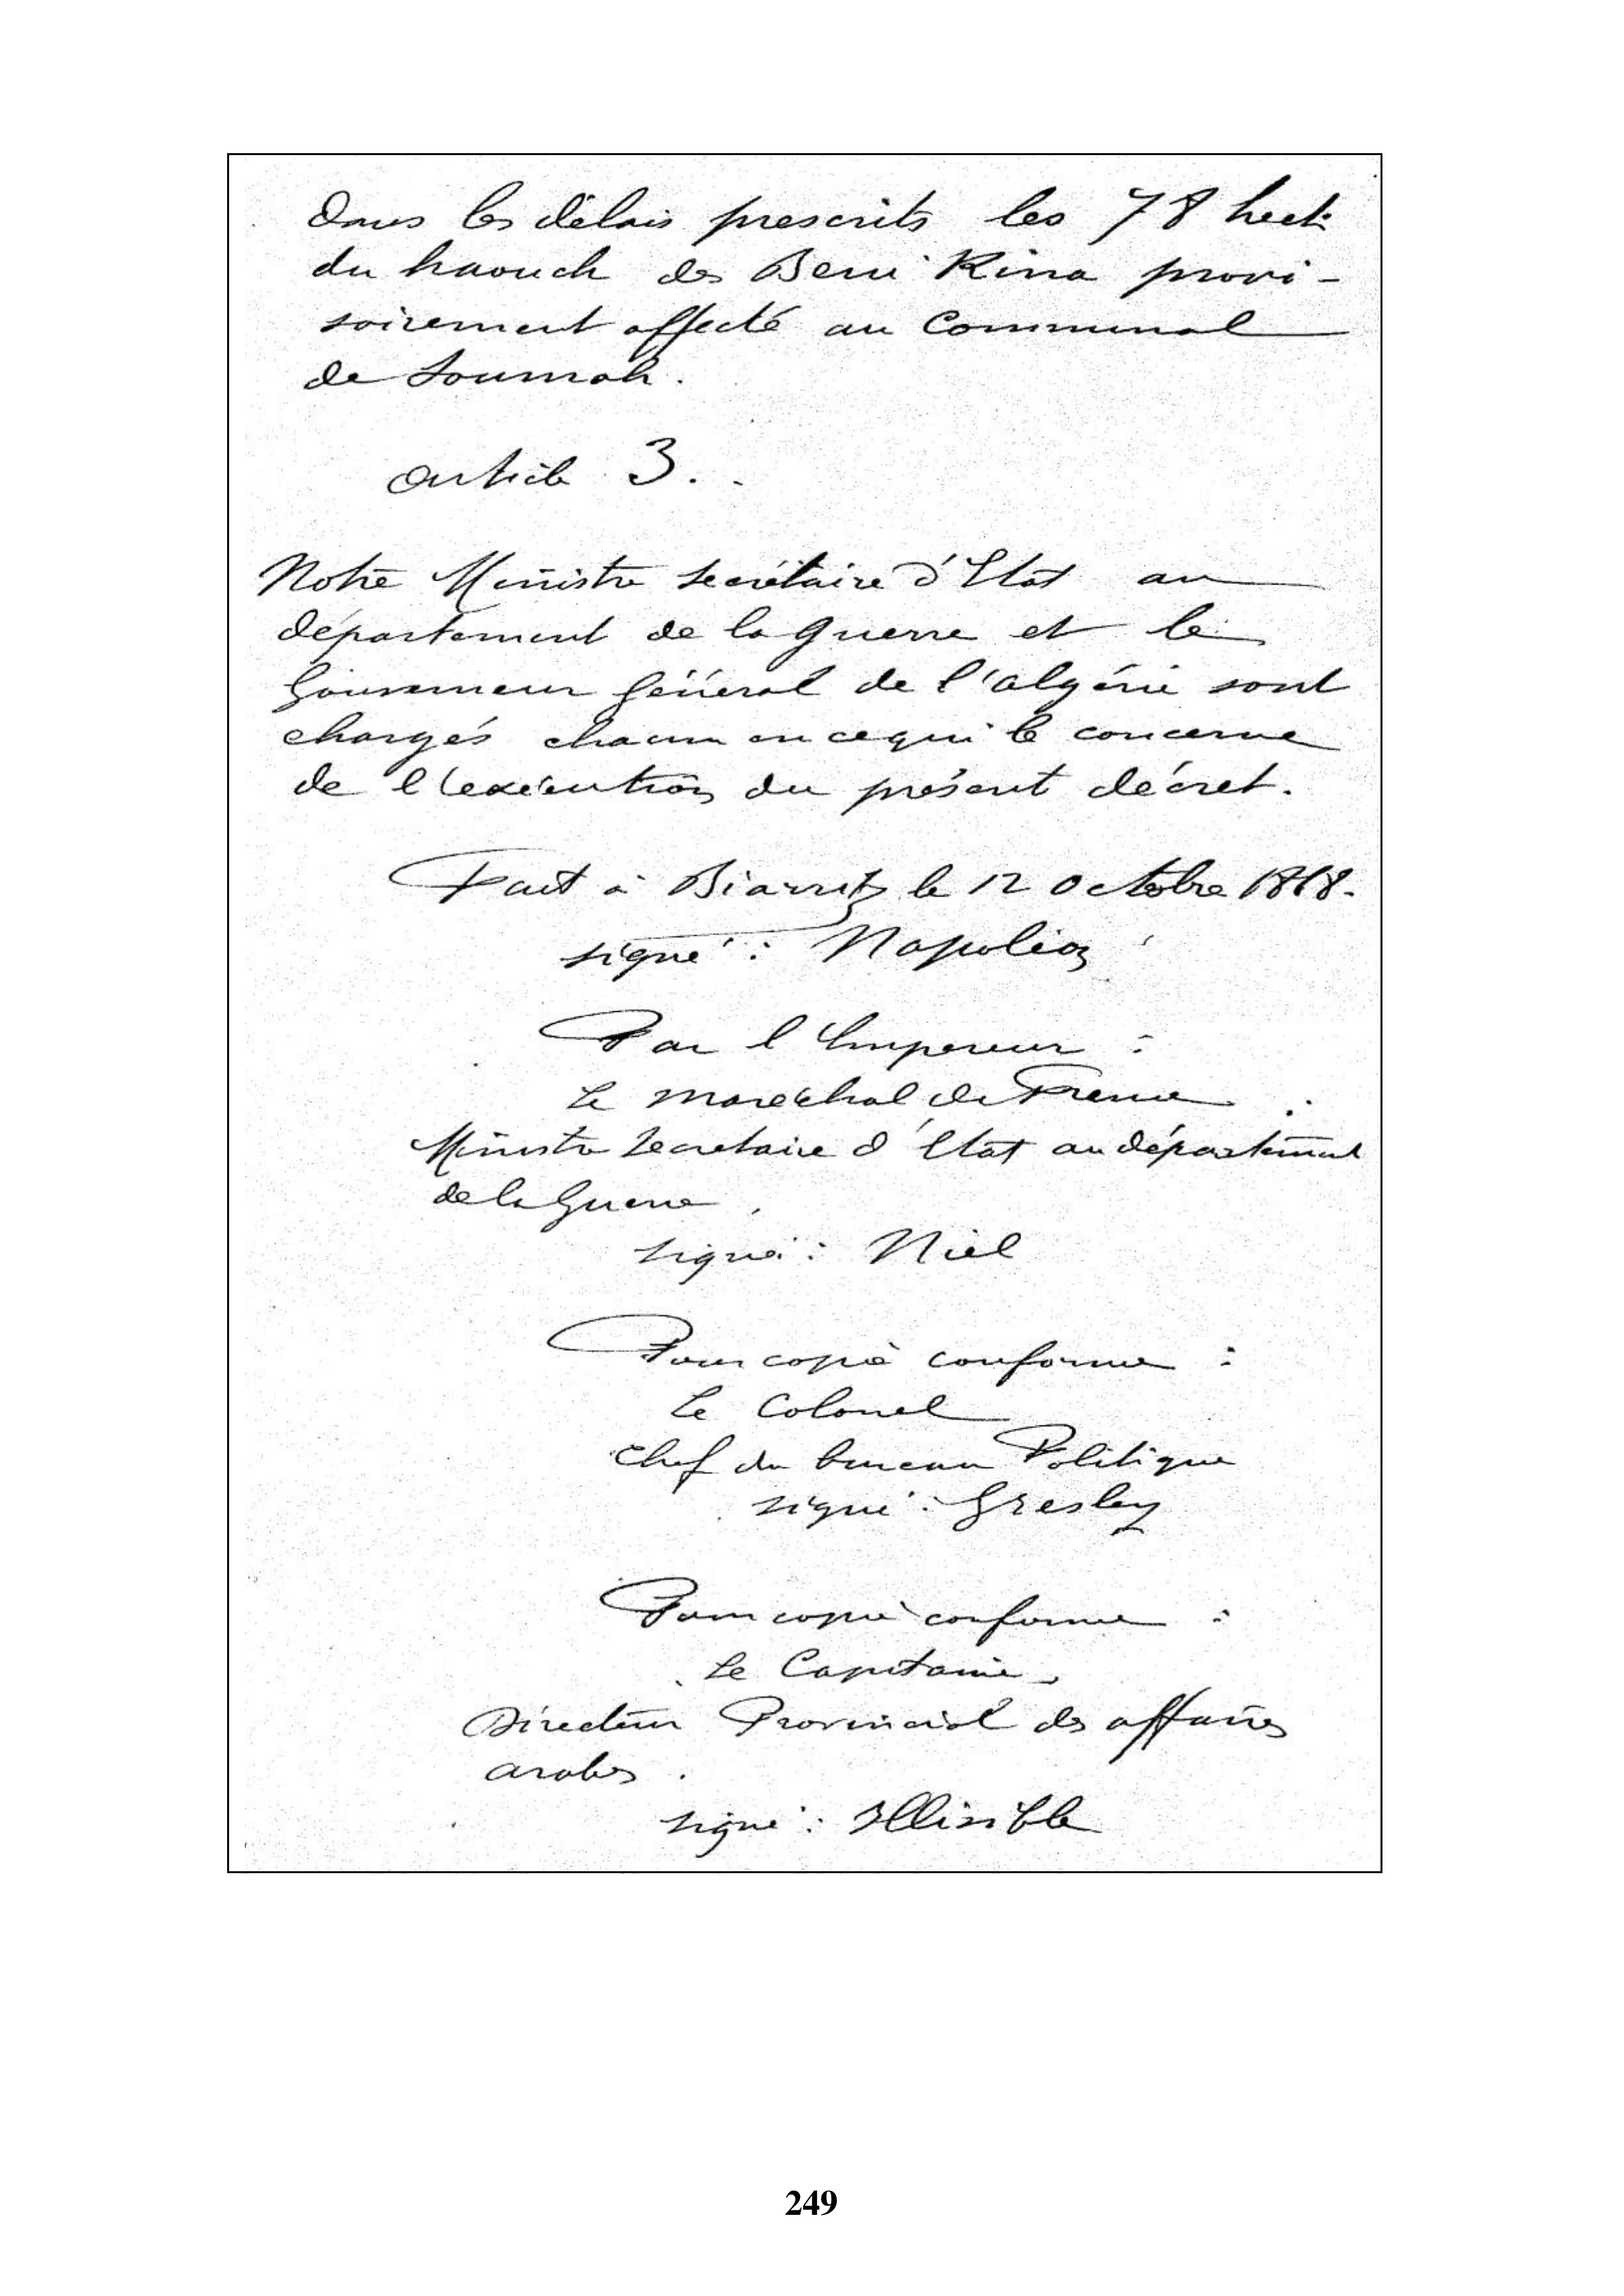 Dans les délais prescrits les 78 hect.
du haouch des Beni Kina provi-
soirement affecté au Communal
de Soumah.
article 3.
Notre Ministre secrétaire d'Etat au
département de la guerre et le
Gouverneur Général de l'algérie sont
chargés chacun en ce qui le concerne
de l'exécution du présent décret.
Fait à Biarritz le 12 octobre 1868.
signé : Napoléon
Par l'Empereur :
Le maréchal de France
Ministre Secretaire d'Etat au département
de la Guerre,
signé : Niel
Pour copie conforme :
Le Colonel
Chef du bureau Politique
signé : Gresley
Pour copie conforme :
Le Capitaine,
Directeur Provincial des affaires
arabes.
signé : Illisible
249